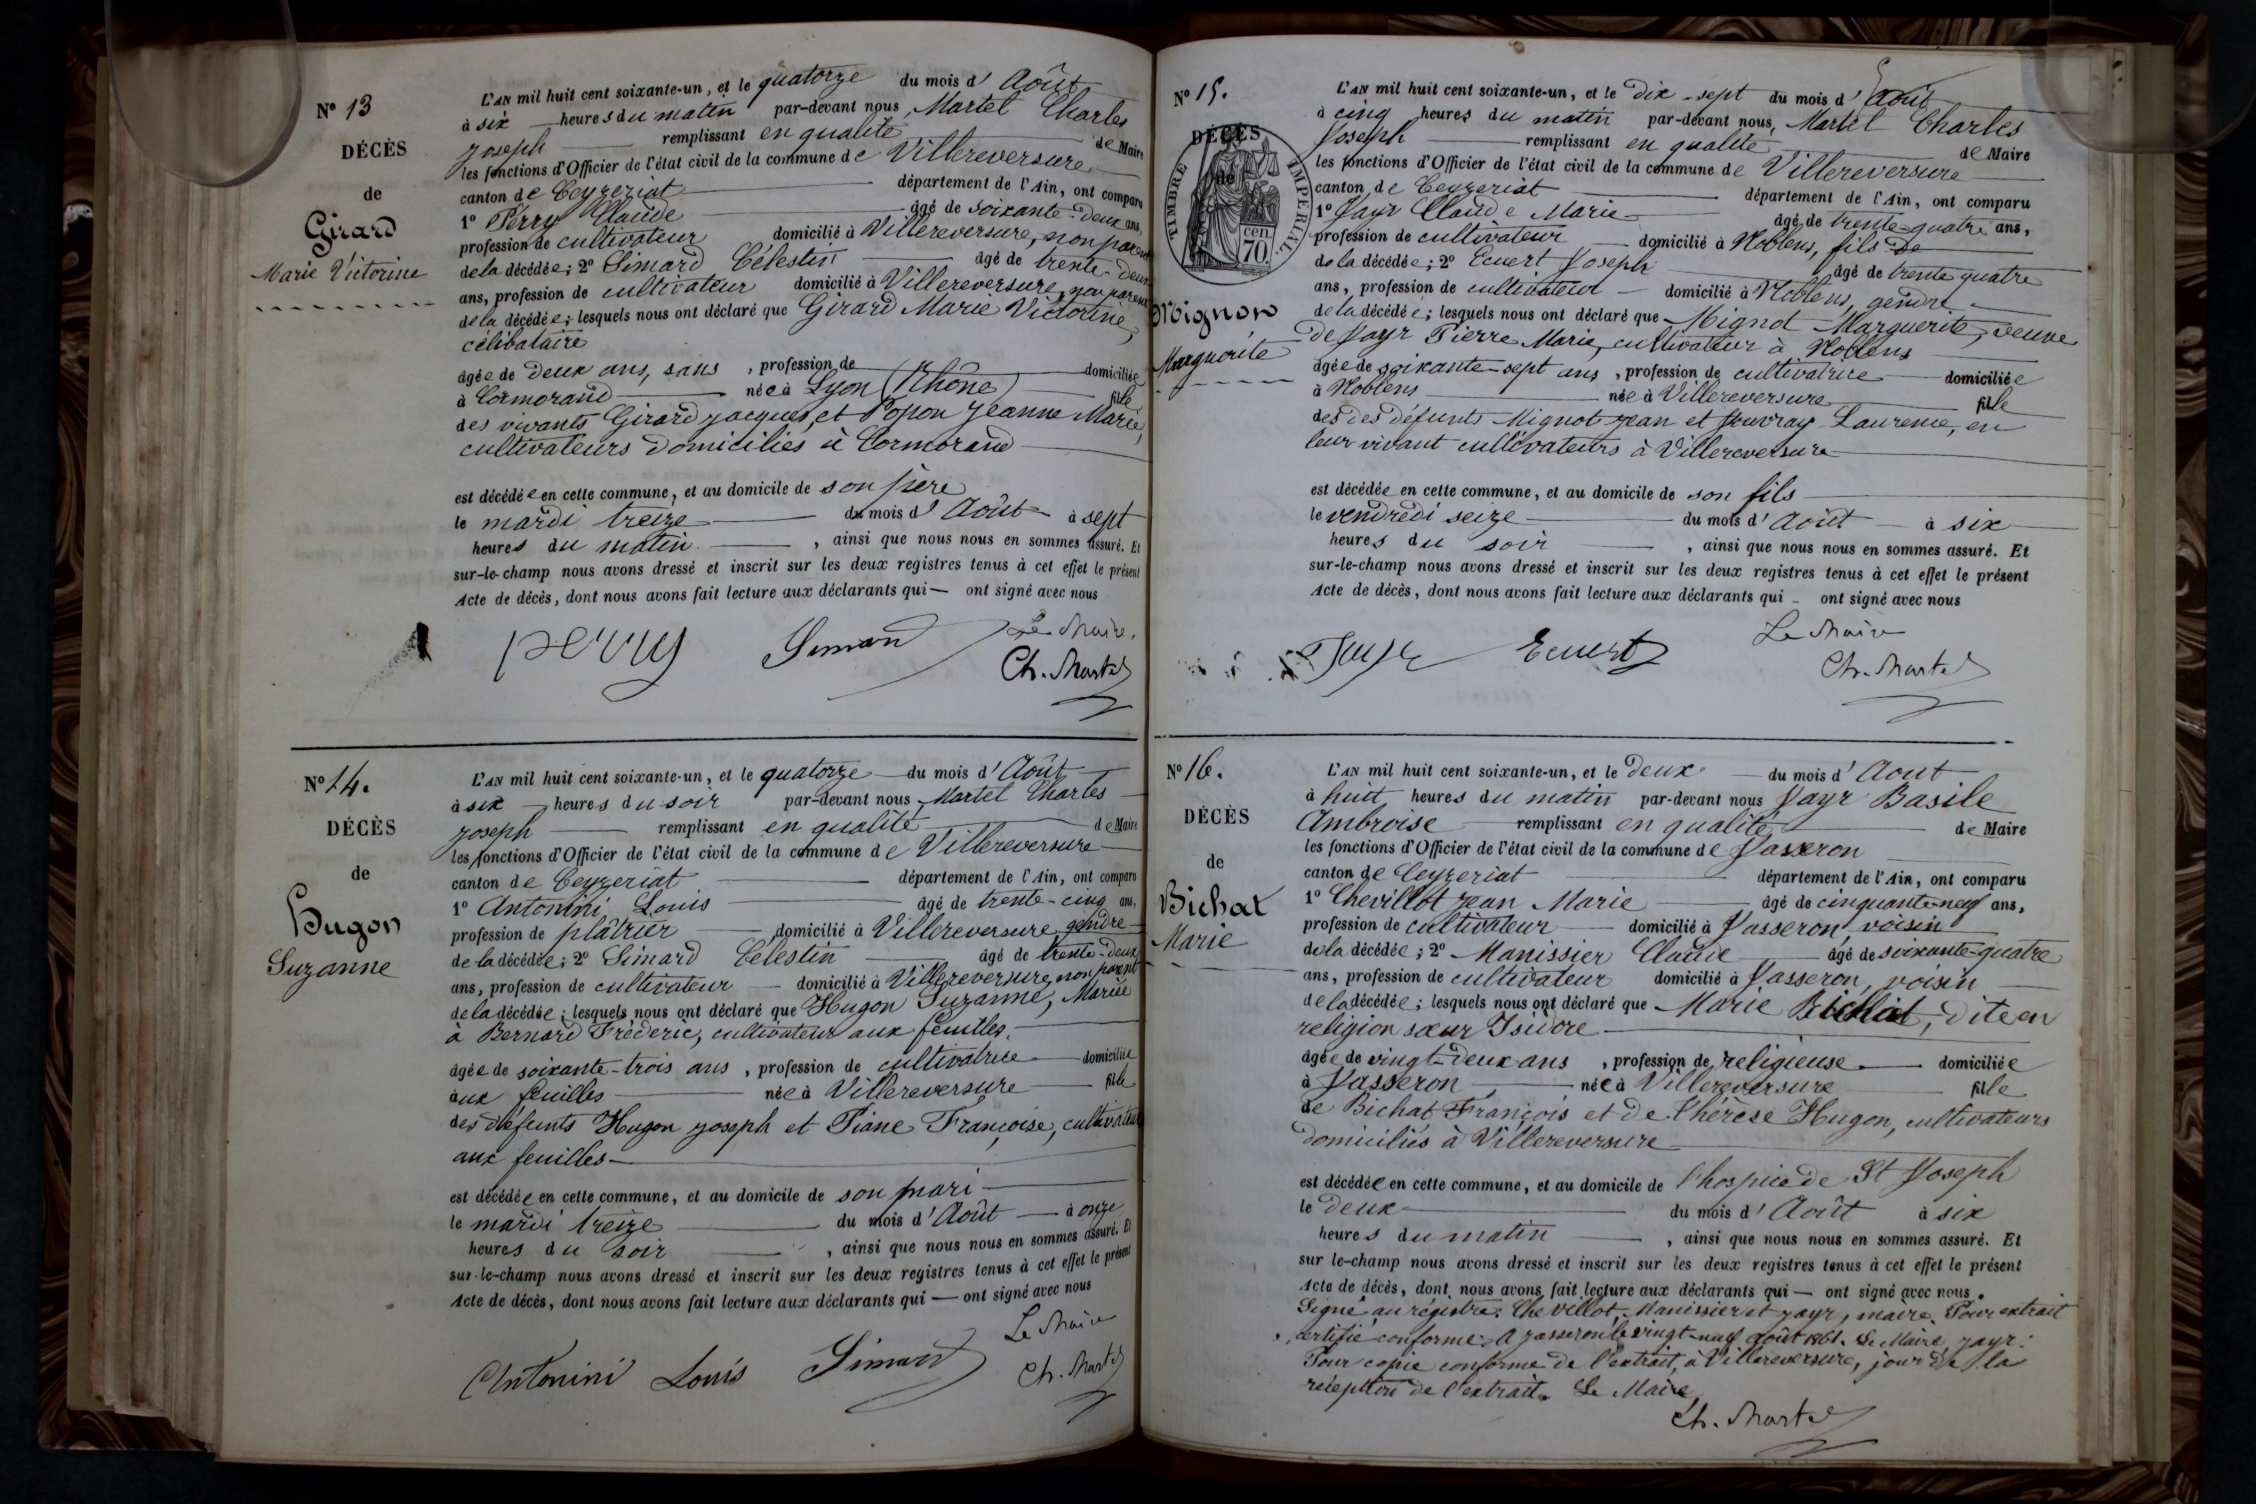 N° 13
DÉCÈS
de
Girard
Marie Victorine
L'AN mil huit cent soixante-un, et le quatorze du mois d'Août
à six heures du matin par-devant nous, Martel Charles
Joseph remplissant en qualité de Maire
les fonctions d'Officier de l'état civil de la commune de Villereversure
canton de Ceyzeriat département de l'Ain, ont comparu
1° Perry Claude âgé de soixante-deux ans,
profession de cultivateur domicilié à Villereversure, non parent
de la décédée; 2° Simard Célestin âgé de trente-deux
ans, profession de cultivateur domicilié à Villereversure, non parent
de la décédée; lesquels nous ont déclaré que Girard Marie Victorine,
célibataire
âgée de deux ans, sans , profession de domiciliée
à Cormorand née à Lyon (Rhône) fille
des vivants Girard Jacques, et Popon Jeanne Marie,
cultivateurs domiciliés à Cormorand
est décédée en cette commune, et au domicile de son père
le mardi treize du mois d'Août à sept
heures du matin , ainsi que nous nous en sommes assuré. Et
sur-le-champ nous avons dressé et inscrit sur les deux registres tenus à cet effet le présent
Acte de décès, dont nous avons fait lecture aux déclarants qui — ont signé avec nous
perry Simard Le Maire,
Ch. Martel
N° 14.
DÉCÈS
de
Hugon
Suzanne
L'AN mil huit cent soixante-un, et le quatorze du mois d'Août
à six heures du soir par-devant nous, Martel Charles
Joseph remplissant en qualité de Maire
les fonctions d'Officier de l'état civil de la commune de Villereversure
canton de Ceyzeriat département de l'Ain, ont comparu
1° Antonini Louis âgé de trente-cinq ans,
profession de plâtrier domicilié à Villereversure gendre
de la décédée; 2° Simard Célestin âgé de trente-deux
ans, profession de cultivateur domicilié à Villereversure, non parent
de la décédée; lesquels nous ont déclaré que Hugon Suzanne, Mariée
à Bernard Fréderic, cultivateur aux feuilles.
âgée de soixante-trois ans , profession de cultivatrice domiciliée
aux feuilles née à Villereversure fille
des défunts Hugon Joseph et Piane Françoise, cultivateurs
aux feuilles
est décédée en cette commune, et au domicile de son mari
le mardi treize du mois d'Août à onze
heures du soir , ainsi que nous nous en sommes assuré. Et
sur-le-champ nous avons dressé et inscrit sur les deux registres tenus à cet effet le présent
Acte de décès, dont nous avons fait lecture aux déclarants qui — ont signé avec nous
Antonini Louis Simard Le Maire
Ch. Martel
N° 15.
DÉCÈS
de
TIMBRE IMPERIAL.
70. cen
Mignon
Marguerite
L'AN mil huit cent soixante-un, et le dix-sept du mois d'Août
à cinq heures du matin par-devant nous, Martel Charles
Joseph remplissant en qualité de Maire
les fonctions d'Officier de l'état civil de la commune de Villereversure
canton de Ceyzeriat département de l'Ain, ont comparu
1° Jayr Claude Marie âgé de trente-quatre ans,
profession de cultivateur domicilié à Noblens, fils de
de la décédée; 2° Ecuert Joseph âgé de trente quatre
ans, profession de cultivateur domicilié à Noblens, gendre
de la décédée; lesquels nous ont déclaré que Mignot Marguerite, veuve
de Jayr Pierre Marie, cultivateur à Noblens
âgée de soixante-sept ans , profession de cultivatrice domiciliée
à Noblens née à Villereversure fille
des des défunts Mignot Jean et Laurence, en
leur vivant cultivateurs à Villereversure
est décédée en cette commune, et au domicile de son fils
le vendredi seize du mois d'Août à six
heures du soir , ainsi que nous nous en sommes assuré. Et
sur-le-champ nous avons dressé et inscrit sur les deux registres tenus à cet effet le présent
Acte de décès, dont nous avons fait lecture aux déclarants qui — ont signé avec nous
Jayr Ecuert Le Maire
Ch. Martel
N° 16.
DÉCÈS
de
Bichat
Marie
L'AN mil huit cent soixante-un, et le deux du mois d'Aout
à huit heures du matin par-devant nous Jayr Basile
Ambroise remplissant en qualité de Maire
les fonctions d'Officier de l'état civil de la commune de Jasseron
canton de Ceyzeriat département de l'Ain, ont comparu
1° Chevillot Jean Marie âgé de cinquante-neuf ans,
profession de cultivateur domicilié à Jasseron voisin
de la décédée; 2° Manissier Claude âgé de soixante-quatre
ans, profession de cultivateur domicilié à Jasseron, voisin
de la décédée; lesquels nous ont déclaré que Marie Bichat, dite en
religion sœur Isidore
âgée de vingt-deux ans , profession de religieuse domiciliée
à Jasseron née à Villereversure fille
de Bichat François et de Thérèse Hugon, cultivateurs
domiciliés à Villereversure
est décédée en cette commune, et au domicile de l'hospice de St Joseph
le deux du mois d'Août à six
heures du matin , ainsi que nous nous en sommes assuré. Et
sur le-champ nous avons dressé et inscrit sur les deux registres tenus à cet effet le présent
Acte de décès, dont nous avons fait lecture aux déclarants qui — ont signé avec nous.
Signé au régistre: Chevillot, Manissier et Jayr, maire. Pour extrait
certifié conforme: A Jasseron le vingt-neuf août 1861. Le Maire, Jayr:
Pour copie conforme de l'extrait, à Villereversure, jour de la
réception de l'extrait. Le Maire
Ch. Martel